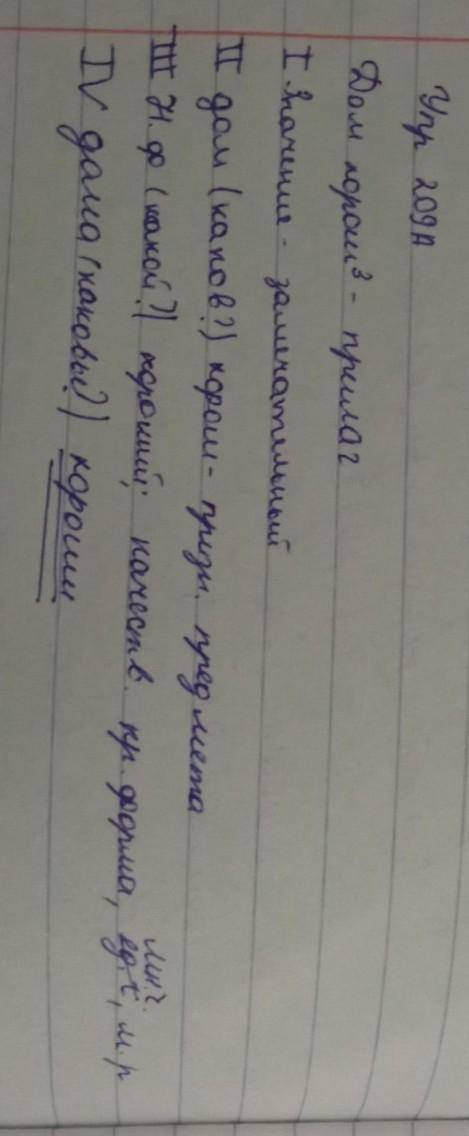 Упр 209А
Дом хорош³ - прилаг
I Значение - замечательный
II дом (каков?) хорош - призн. предмета
III Н.ф (какой?) хороший; качеств. кр. форма, ед.ч, мн.ч. м.р
IV дома (каковы?) хороши